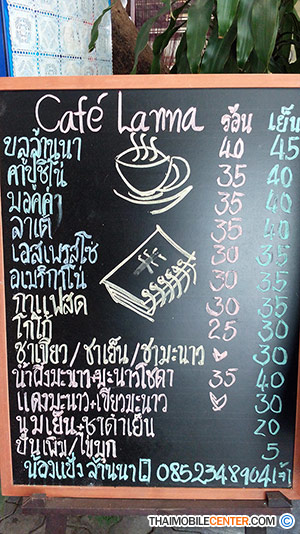 Café Lanna ร้อน เย็น
บลูล้านนา 40 45
คาปูชิโน่ 35 40
มอคค่า 35 40
ลาเต้ 35 40
เอสเพรสโซ 30 35
อเมริกาโน่ 30 35
กาแฟสด 30 35
โกโก้ 25 30
ชาเขียว/ชาเย็น/ชามะนาว 30
น้ำผึ้งมะนาว+มะนาวโซดา 35 40
แดงมะนาว+เขียวมะนาว 30
นมเย็น+ชาดำเย็น 20
ปั่นเพิ่ม/ไข่มุก 5
น้องแป้ง ล้านนา 0852348904 เจ้า
THAIMOBILECENTER.COM